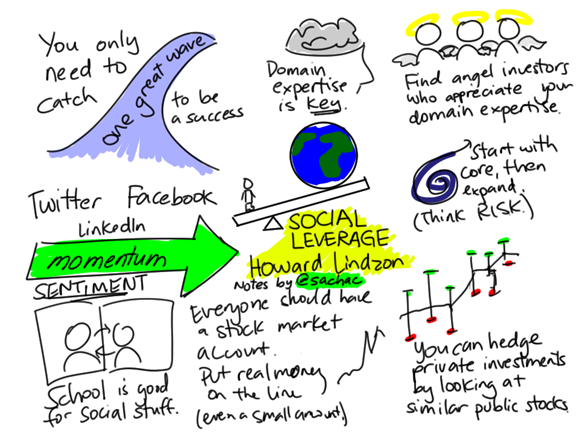 You only
need to
catch
one great wave
to be
a success
Domain
expertise
is key.
Find angel investors
who appreciate your
domain expertise.
Twitter Facebook
LinkedIn
momentum
SENTIMENT
SOCIAL
LEVERAGE
Howard Lindzon
Notes by @sachac
Start with
core, then
expand.
(Think RISK.)
School is good
for social stuff.
Everyone should have
a stock market
account.
Put real money
on the line
(even a small amount.)
You can hedge
private investments
by looking at
similar public stocks.